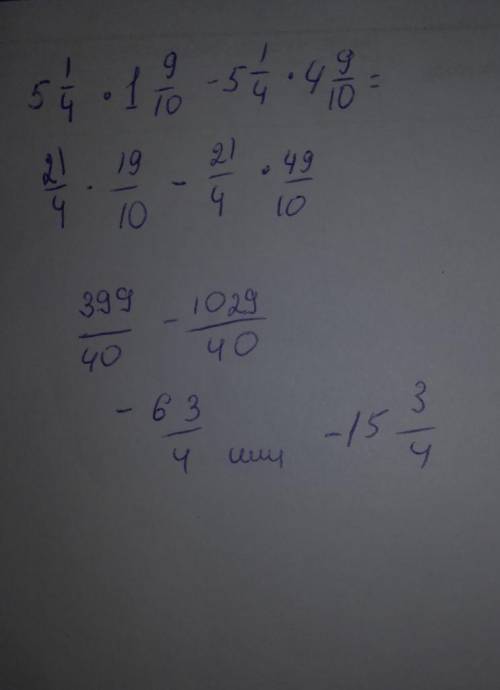 5 1/4 · 1 9/10 - 5 1/4 · 4 9/10 =
21/4 · 19/10 - 21/4 · 49/10
399/40 - 1029/40
- 63/4 или -15 3/4